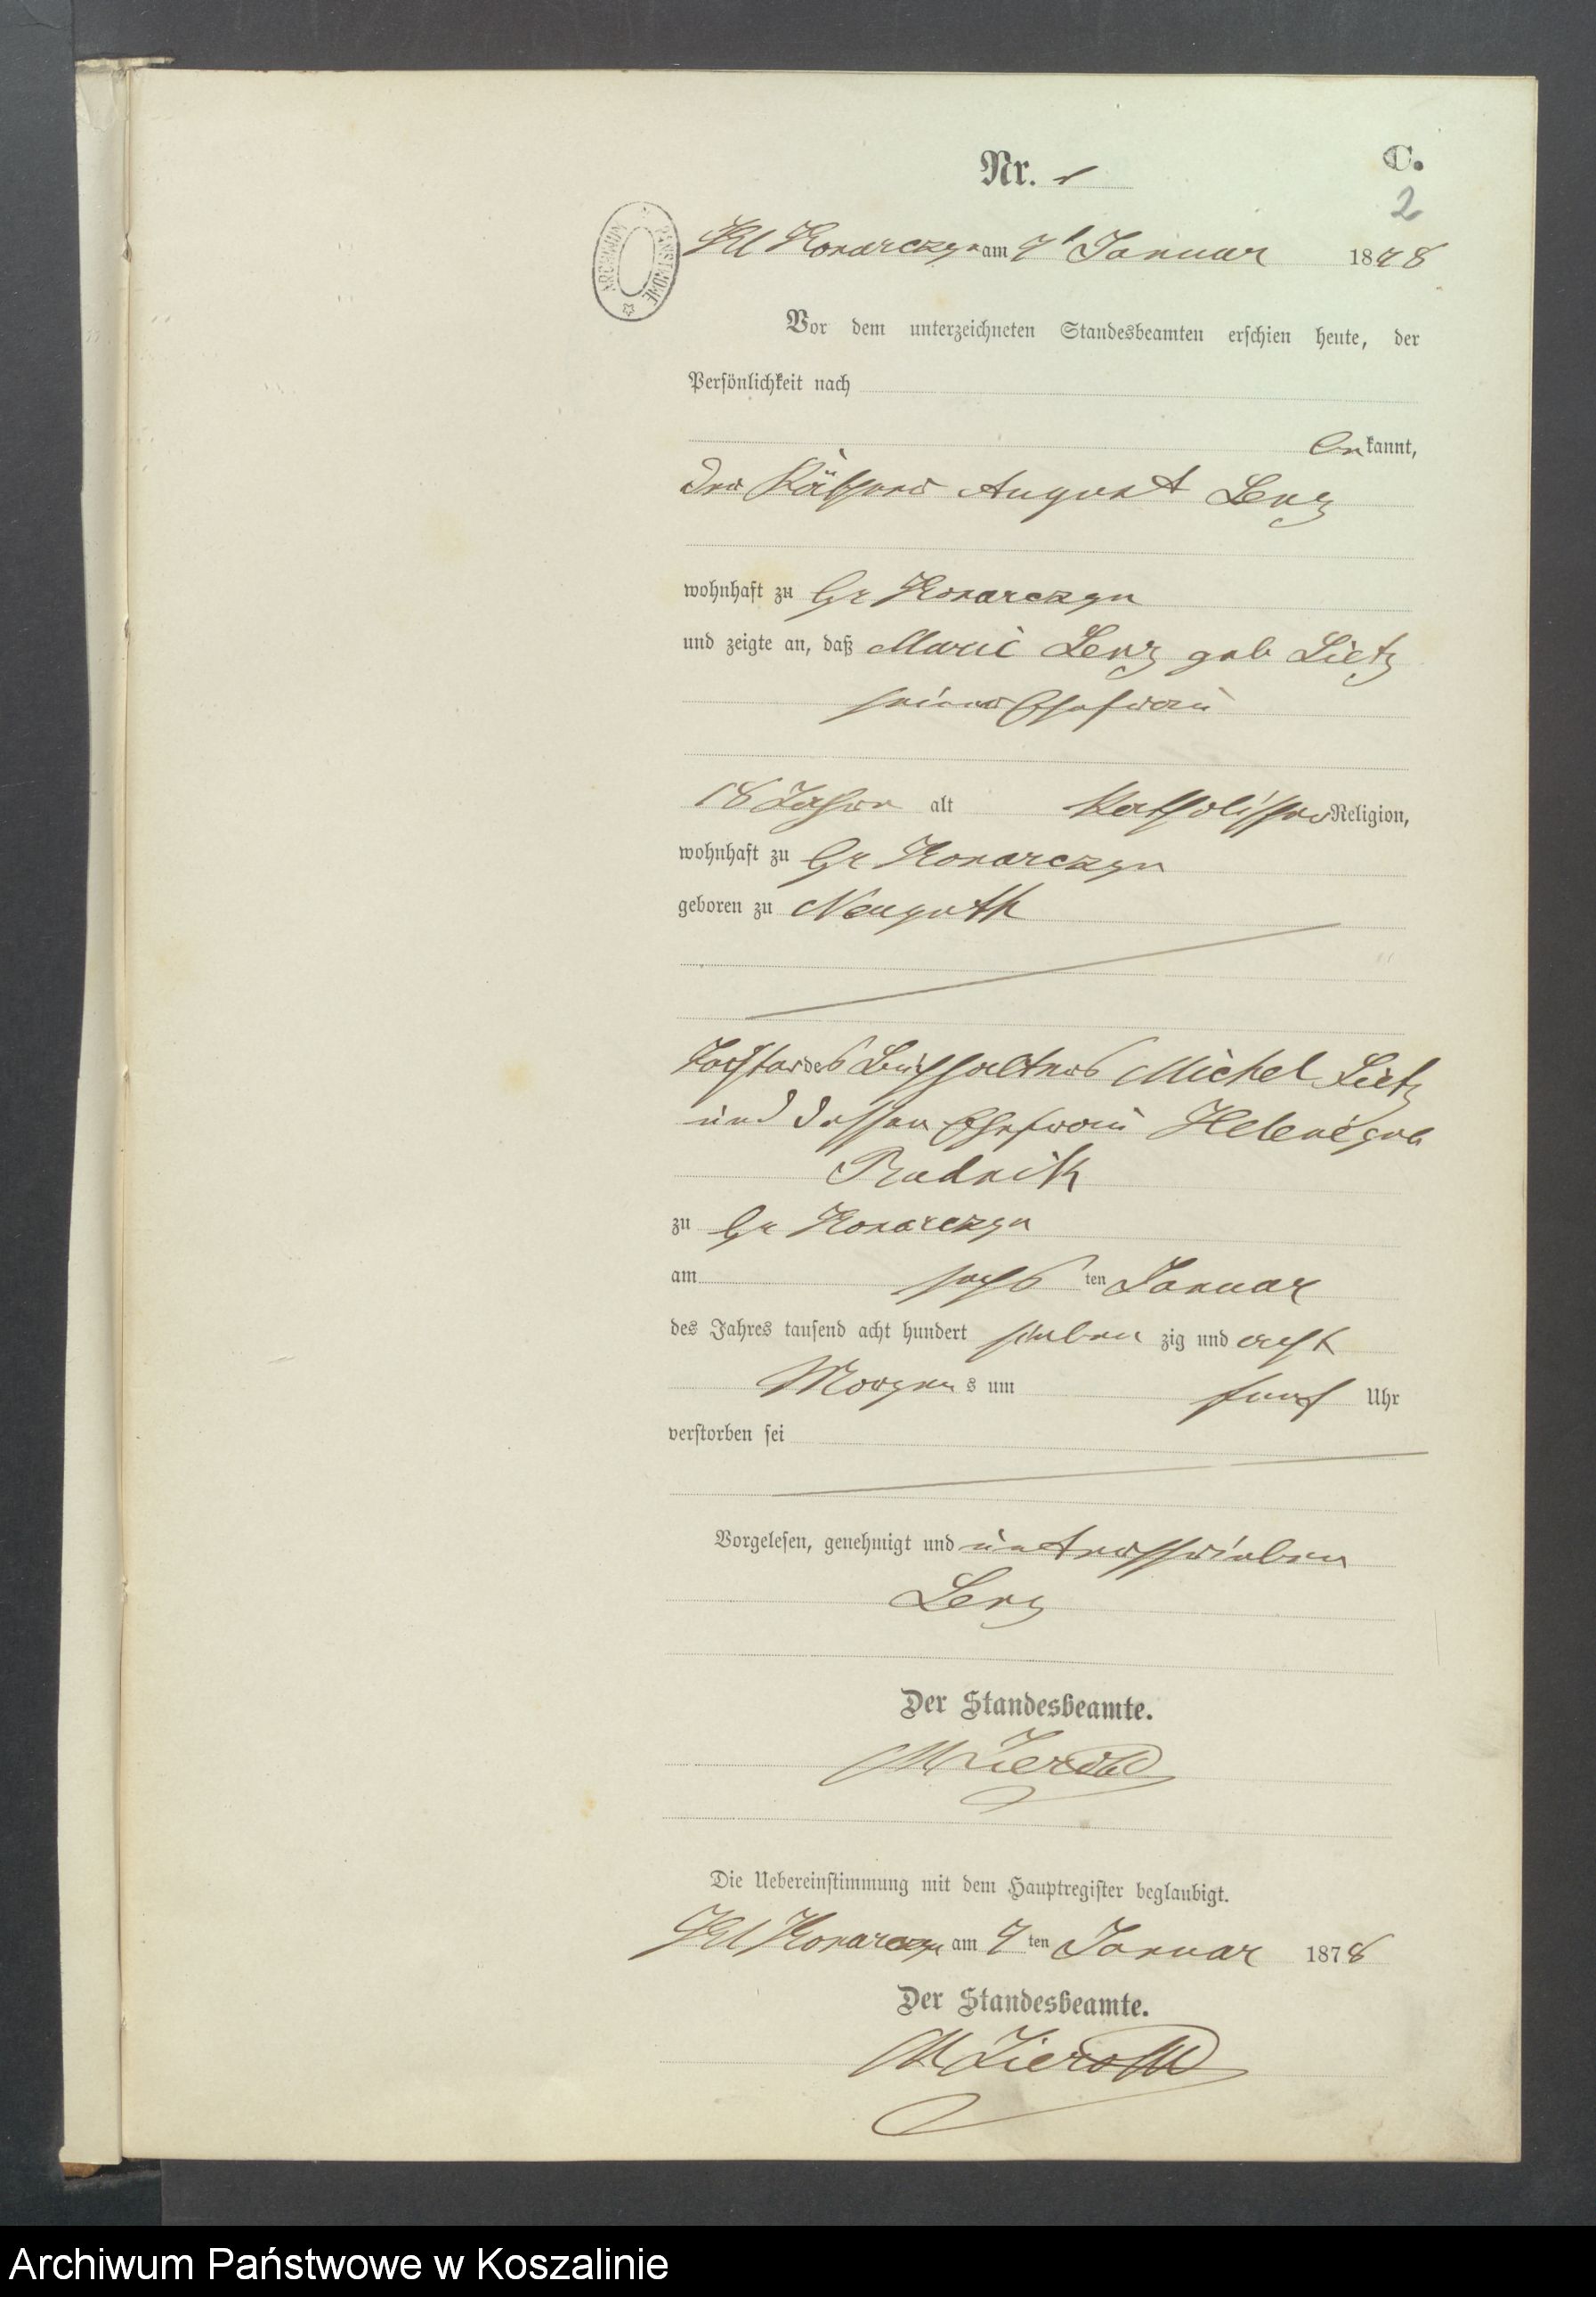 Nr. 1
C.
2
ARCHIWUM PAŃSTWOWE
Kl Konarczyn am 7t Januar 1878
Vor dem unterzeichneten Standesbeamten erschien heute, der
Persönlichkeit nach
bekannt,
der August Lenz
wohnhaft zu Gr Konarczyn
und zeigte an, daß Marie Lenz geb Lietz
seine Ehefrau
18 Jahre alt katholischer Religion,
wohnhaft zu Gr Konarczyn
geboren zu Neuguth
Tochter des Michel Lietz
und dessen Ehefrau Helene geb
Rudnik
zu Gr Konarczyn
am sechs ten Januar
des Jahres tausend acht hundert sieben zig und acht
Morgen s um fünf Uhr
verstorben sei
Vorgelesen, genehmigt und unterschrieben
Lenz
Der Standesbeamte.
Die Uebereinstimmung mit dem Hauptregister beglaubigt.
Kl Konarczyn am 7 ten Januar 1878
Der Standesbeamte.
Archiwum Państwowe w Koszalinie